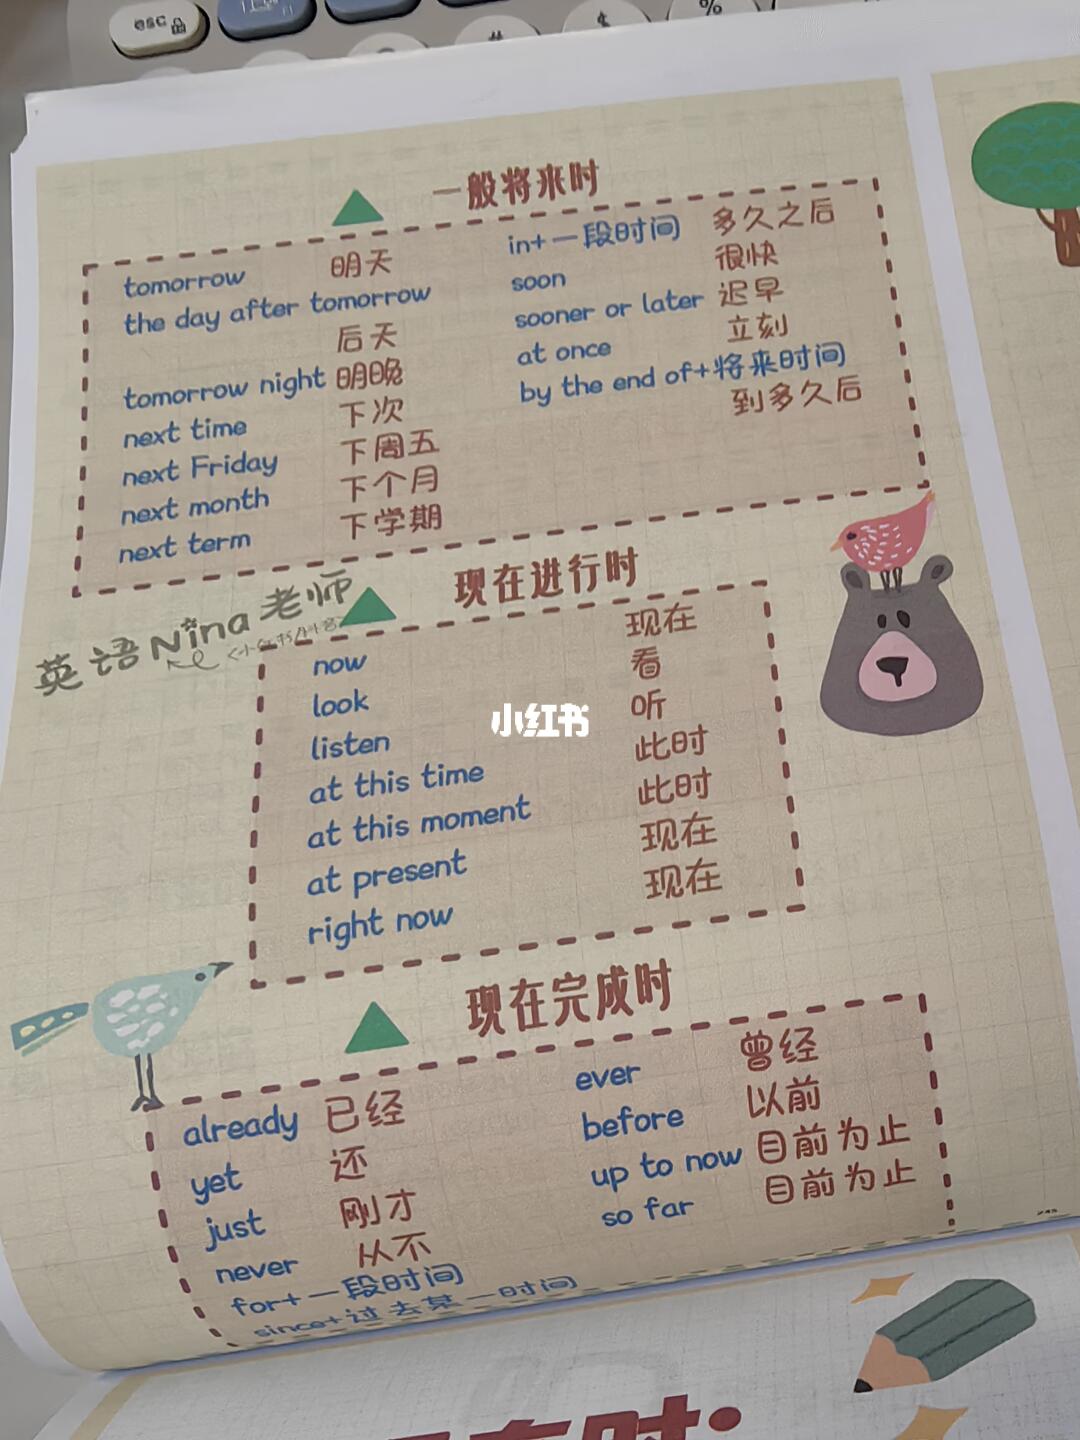 esc
$
%
一般将来时
tomorrow 明天
the day after tomorrow
后天
tomorrow night 明晚
next time 下次
next Friday 下周五
next month 下个月
next term 下学期
in+一段时间 多久之后
soon 很快
sooner or later 迟早
at once 立刻
by the end of+将来时间
到多久后
英语Nina老师
现在进行时
now 现在
look 看
listen 听
at this time 此时
at this moment 此时
at present 现在
right now 现在
小红书
现在完成时
already 已经
yet 还
just 刚才
never 从不
for+一段时间
since+过去某一时间
ever 曾经
before 以前
up to now 目前为止
so far 目前为止